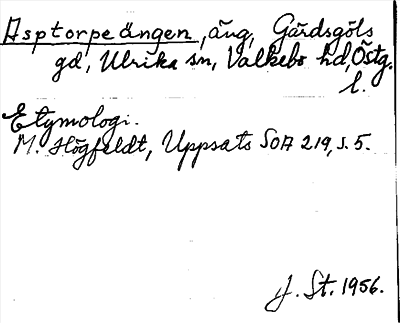 Asptorpeängen, äng, Gårdsgöls
gd, Ulrika sn, Valkebo hd, Östg.
l.
Etymologi.
M. Högfeldt, Uppsats SOA 219, s. 5.
J. St. 1956.